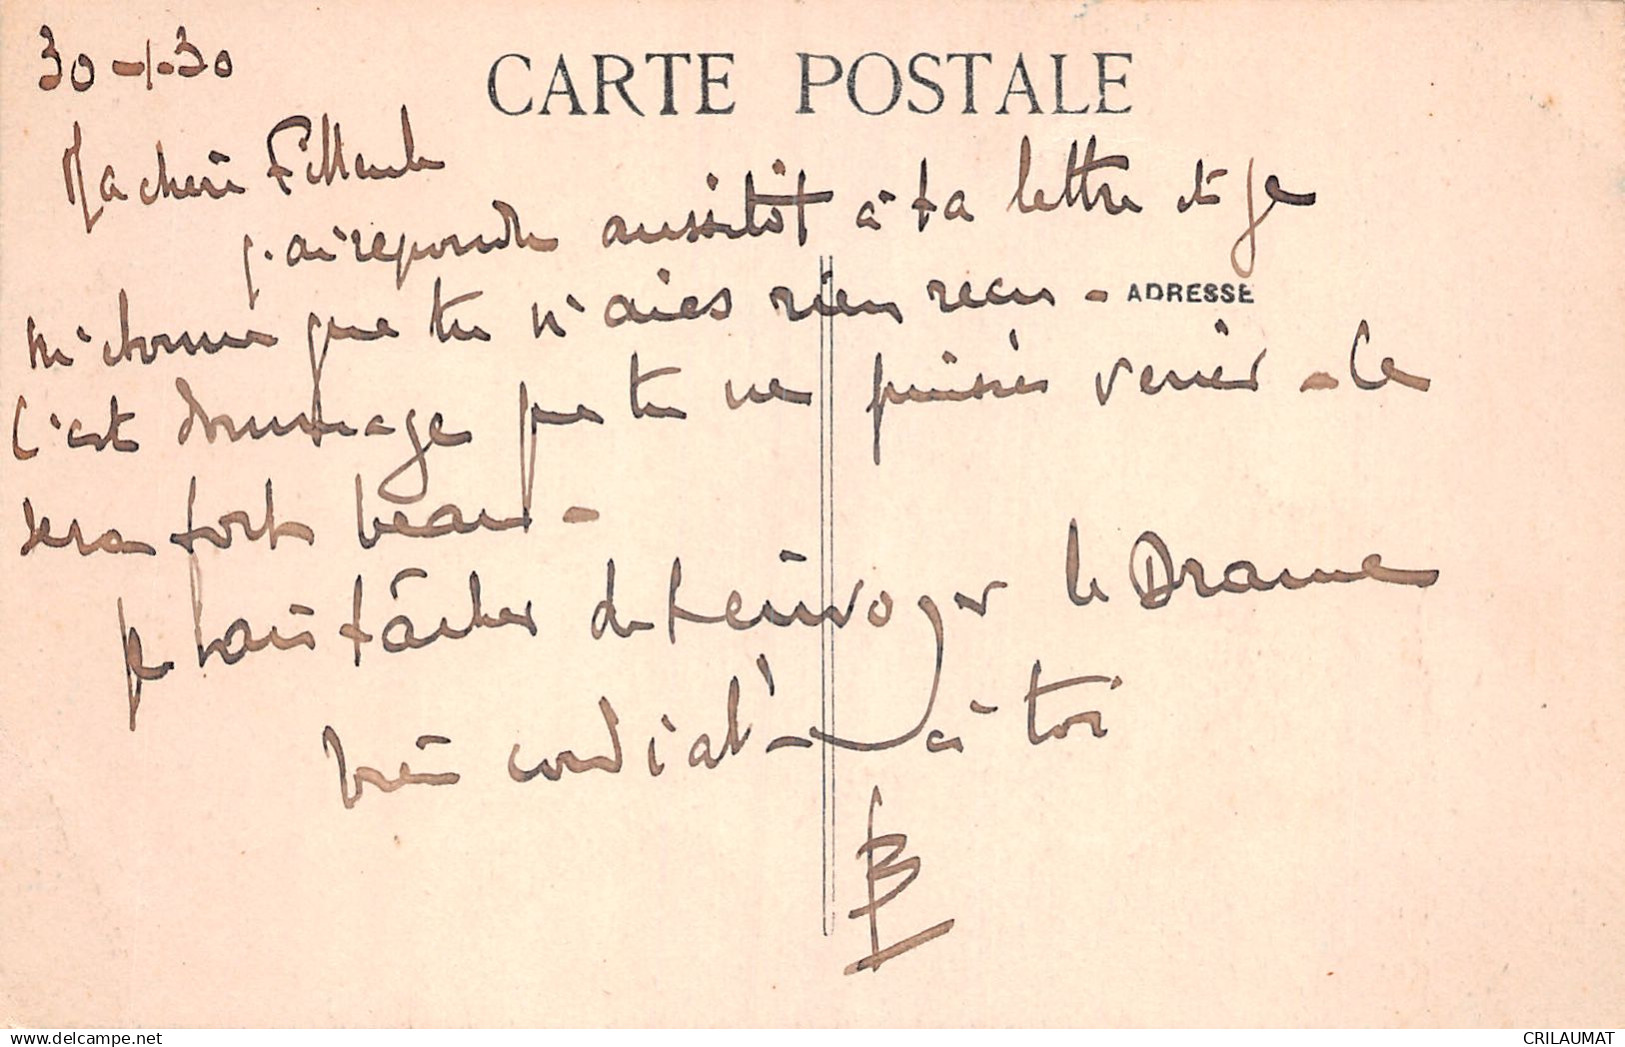 30-1-30
CARTE POSTALE
Ma chère Filleule
j'ai repondu aussitôt à ta lettre et je
m'étonne que tu n'aies rien reçu -
ADRESSE
C'est dommage que tu ne puisses venir - Ce
sera fort beau -
je vais tâcher de t'envoyer le Drame
bien cordialt à toi
B
CRILAUMAT